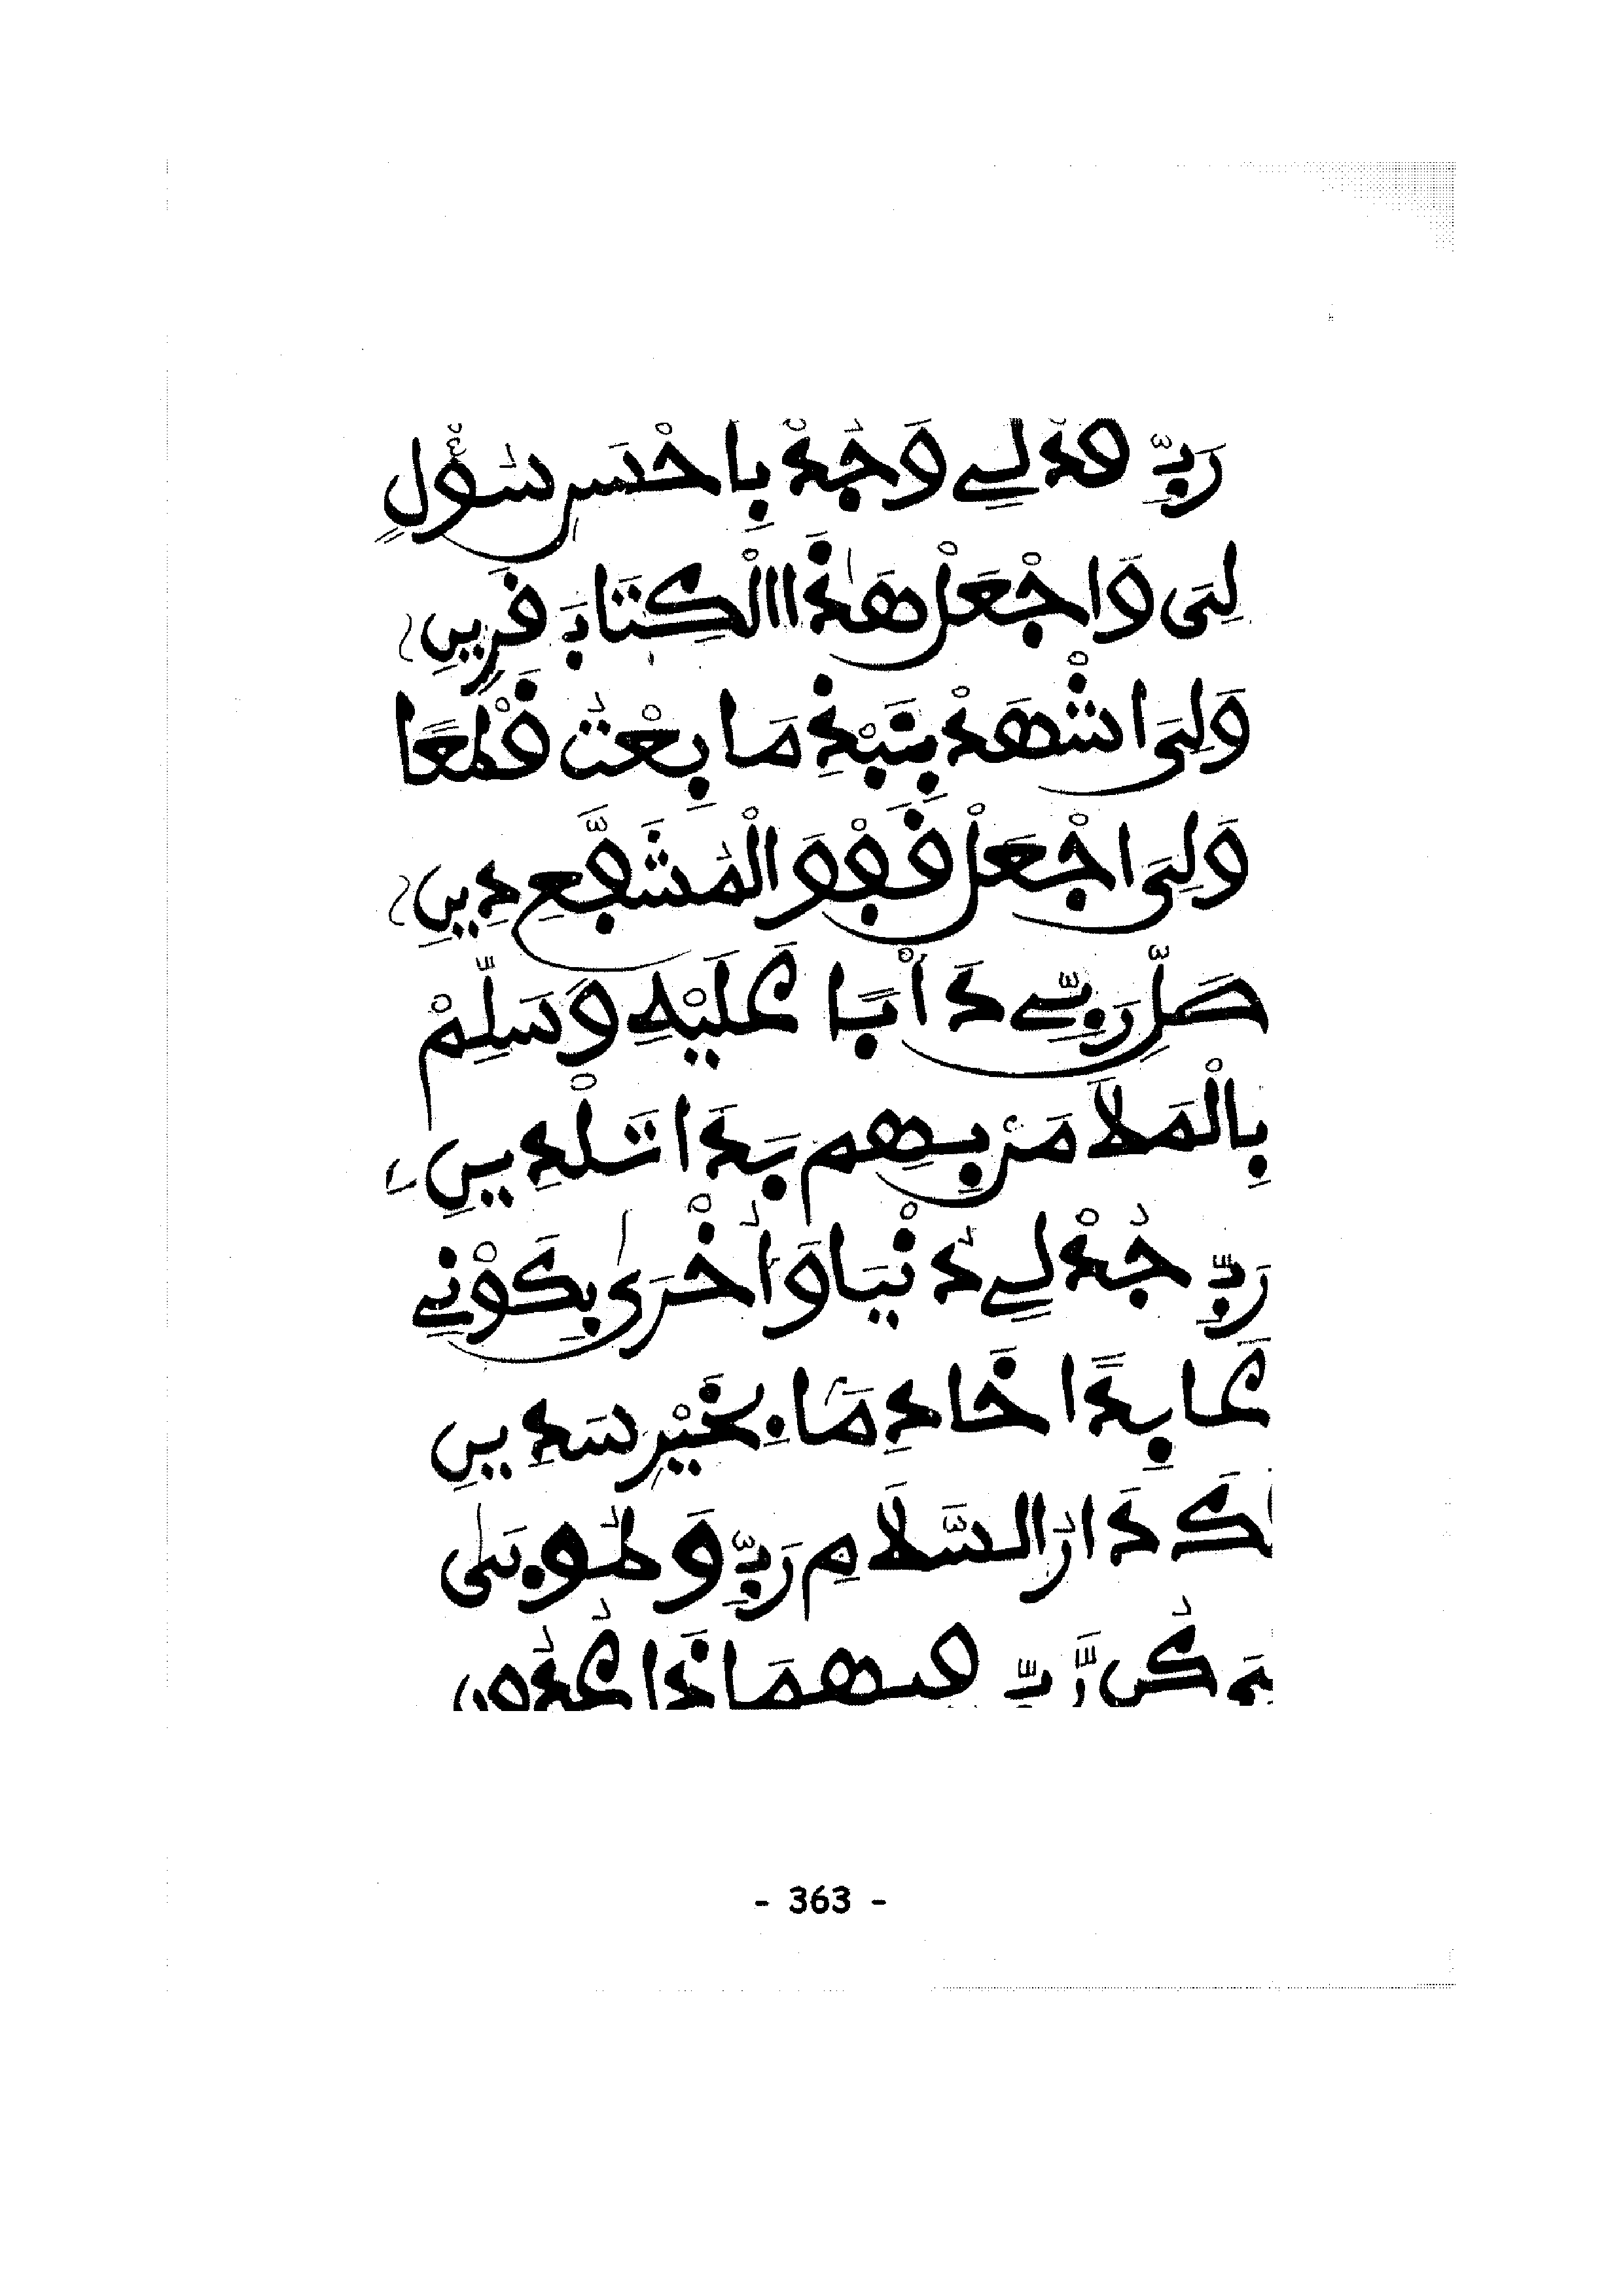 رَبِّ هَدْ لِے وَجُدْ بِاَحْسَنِ سُؤْلٍ
لِيَ وَاجْعَلْ هَٰذَا الْكِتَابَ فَرِينِ
وَلِيَ اشْهَدْ بِنَبْذِ مَا بِعْتُ فَطْعًا
وَلِيَ اجْعَلْ فَفْوَ الْمُشَفَّعِ دِينِ
صَلِّ رَبِّے دَأْبًا عَلَيْهِ وَسَلِّمْ
بِالْمَلَا مَنْ بِهِم بَدَا تَلْدِينِ
رَبِّ جُدْ لِے دُنْيَا وَاُخْرَىٰ بِكَوْنِے
عَابِدًا خَادِمًا بِخَيْرِ سَدِينِ
لَكَ دَارُ السَّلَامِ رَبِّ وَطُوبَىٰ
كُن رَّبِّ مَاذَا عُدُونِ
- 363 -